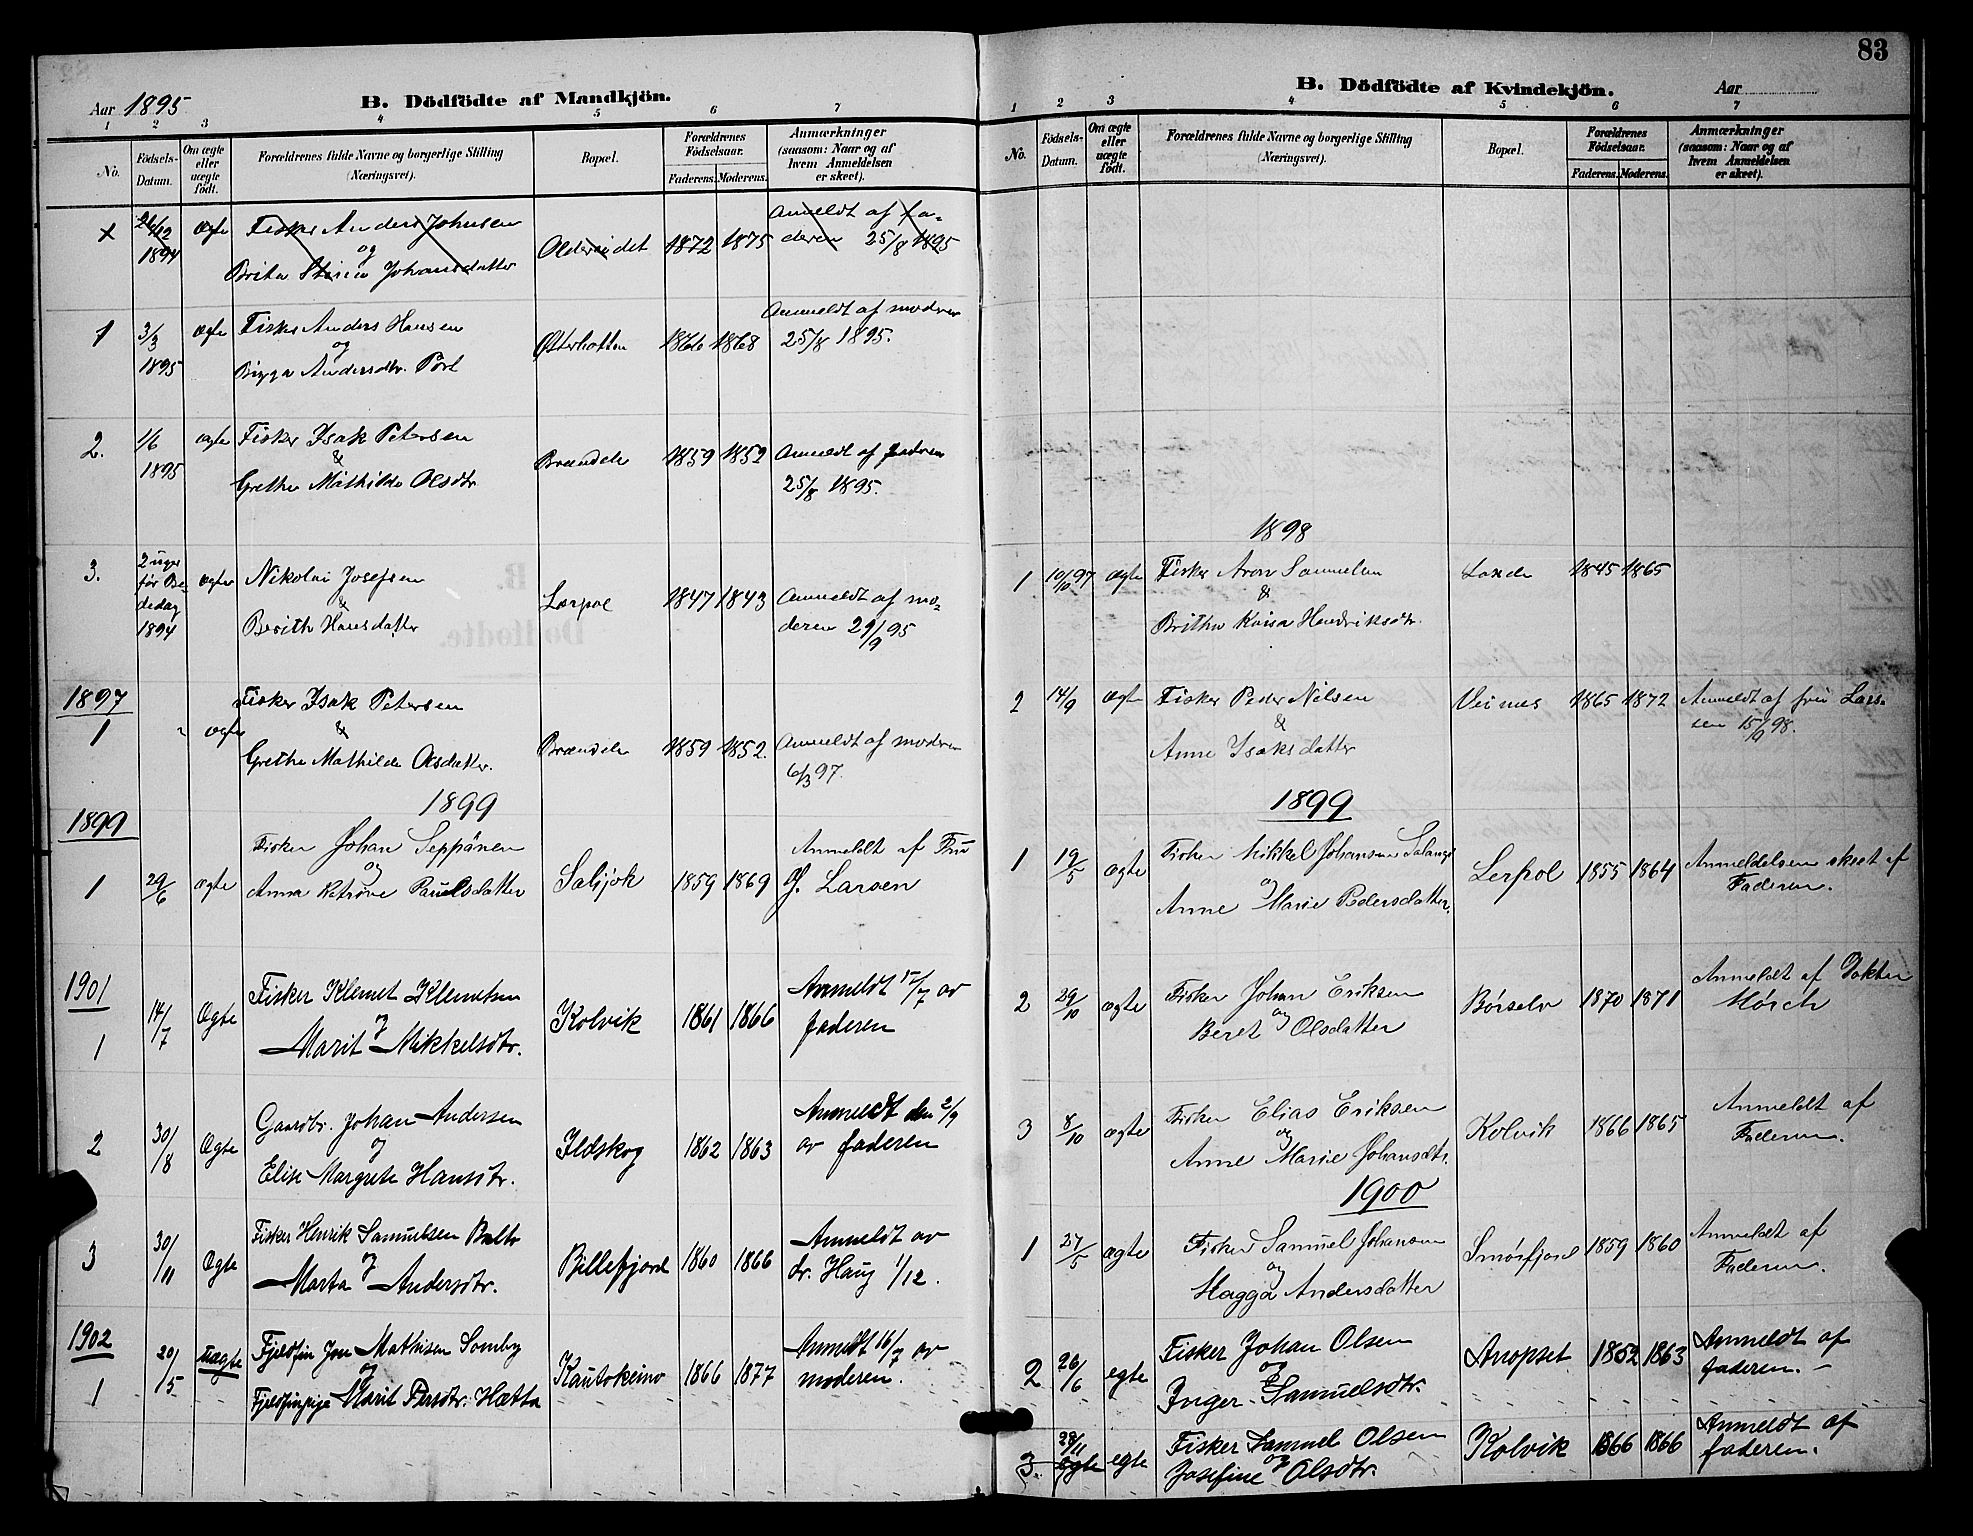 83
Aar 1895. B. Dödfödte af Mandkjön.
1 2 3 4 5 6 7
No. Födsels-Datum. Om ægte eller uægte födt. Forældrenes fulde Navne og borgerlige Stilling (Næringsvei). Bopæl. Forældrenes Födselsaar. Faderens. Moderens. Anmærkninger (saasom: Naar og af hvem Anmeldelsen er skeet).
x 26/12 1894 ægte Fisker Anders Johnsen og Oldervidet 1872 1875 Anmeldt af fa-
Brita Johansdatter deren 25/8 1895
1 3/3 1895 ægte Fisker Anders Hansen og 1866 1868 Anmeldt af moderen
Bigga Andersdtr. Port 25/8 1895.
2. 1/6 1895 ægte Fisker Isak Petersen & Brændelv 1859 1852 Anmeldt af faderen
Grethe Mathilde Olsdtr 25/8 1895.
3. 2 uger før Be-dedag 1894 ægte Nikolai Josefsen & Lærpol 1847 1843 Anmeldt af mo-
Berith Hansdatter deren 29/9 95
1897
1 " ægte Fisker Isak Petersen & Brændelv 1859 1852. Anmeldt af moderen
Grethe Mathilde Olsdatter. 6/3 97.
1899
1899
1 29/6 ægte Fisker Johan Seppänen og Saljok 1859 1869 Anmeldt af Fru
Anna Katrine Paulsdatter J. Larsen
1901
1 14/7 Ægte Fisker Klemet Klemetsen og Kolvik 1861 1866 Anmeldt 17/7 av
Marit Mikkelsdtr. faderen
2 30/8 Ægte Gaardbr. Johan Andersen og Ildskog 1862 1863 Anmeldt den 2/9
Elise Margrete Hansdtr. av faderen
3 30/11 Ægte Fisker Henrik Samuelsen Balto og Billefjord 1860 1866 Anmeldt av
Marta Andersdtr. dr. Haug 1/12.
1902
1 20/5 uægte Fjeldfin Jon Mathisen Somby og Kautokeino 1866 1877 Anmeldt 16/7 av
Fjeldfinpige Marit Persdtr. Hætta moderen.
B. Dödfödte af Kvindekjön. Aar
1 2 3 4 5 6 7
No. Födsels-Datum. Om ægte eller uægte födt. Forældrenes fulde Navne og borgerlige Stilling (Næringsvei). Bopæl. Forældrenes Födselsaar. Faderens. Moderens. Anmærkninger (saasom: Naar og af hvem Anmeldelsen er skeet).
1898
1 10/10 97 ægte Fisker Aron Samuelsen & 1845 1865
Britha Kaisa Hendriksdtr.
2 14/9 ægte Fisker Peder Nilsen & Veines 1865 1872 Anmeldt af fru Lars-
Anne Isaksdatter sen 15/9 98.
1899
1 19/5 ægte Fisker Mikkel Johansen og Lerpol 1855 1864 Anmeldelsen skeet af
Anne Marie Pedersdatter. Faderen.
2 29/10 ægte Fisker Johan Eriksen og Børselv 1870 1871 Anmeldt af Doktor
Beret Olsdatter Mørch
3 8/10 ægte Fisker Elias Eriksen og Kolvik 1866 1865 Anmeldt af
Anne Marie Johansdtr. Faderen.
1900
1 27/5 ægte Fisker Samuel Johansen og Smørfjord 1859 1860 Anmeldt af
Magga Andersdatter Faderen.
2 26/6 egte Fisker Johan Olsen og Anopset 1852 1863 Anmeldt af
Inger Samuelsdtr. faderen. –
3. 28/11 egte egte Fisker Samuel Olsen og Kolvik 1866 1866 Anmeldt af
Josefine Olsdtr. faderen.